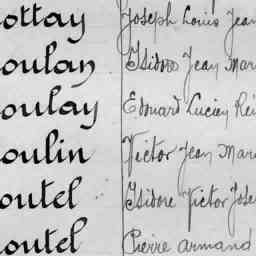 ottay Joseph Louis Jean
oulan Isidore Jean Mari
oulay Edouard Lucien Rei
oulin Victor Jean Mari
outel Isidore Victor Jose
outel Pierre Armand